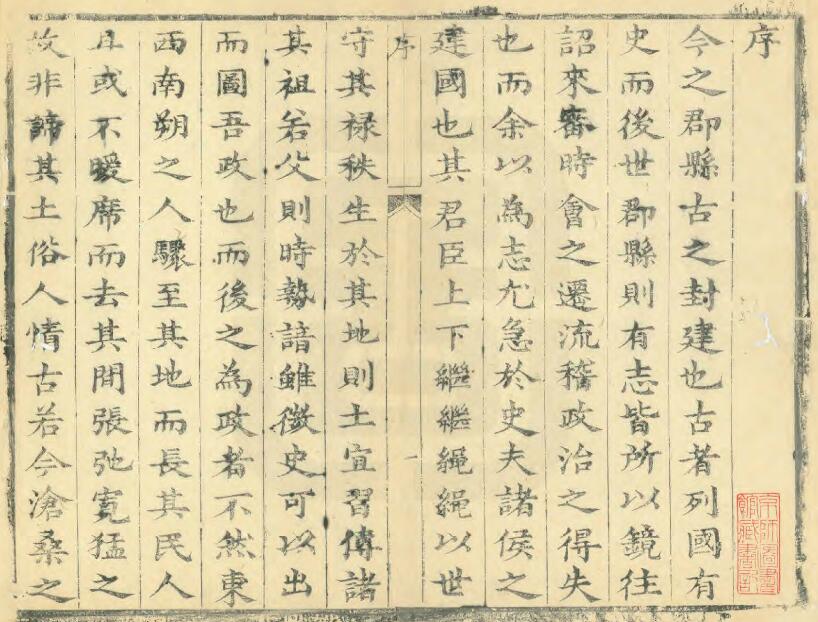 序
今之郡縣古之封建也古者列國有
史而後世郡縣則有志皆所以鏡往
詔來審時會之遷流稽政治之得失
也而余以為志尤急於史夫諸侯之
建國也其君臣上下繼繼繩繩以世
序
一
守其祿秩生於其地則土宜習傳諸
其祖若父則時勢諳雖微史可以出
而圖吾政也而後之為政者不然東
西南朔之人驟至其地而長其民人
且或不暖席而去其間張弛寬猛之
故非諦其土俗人情古若今滄桑之